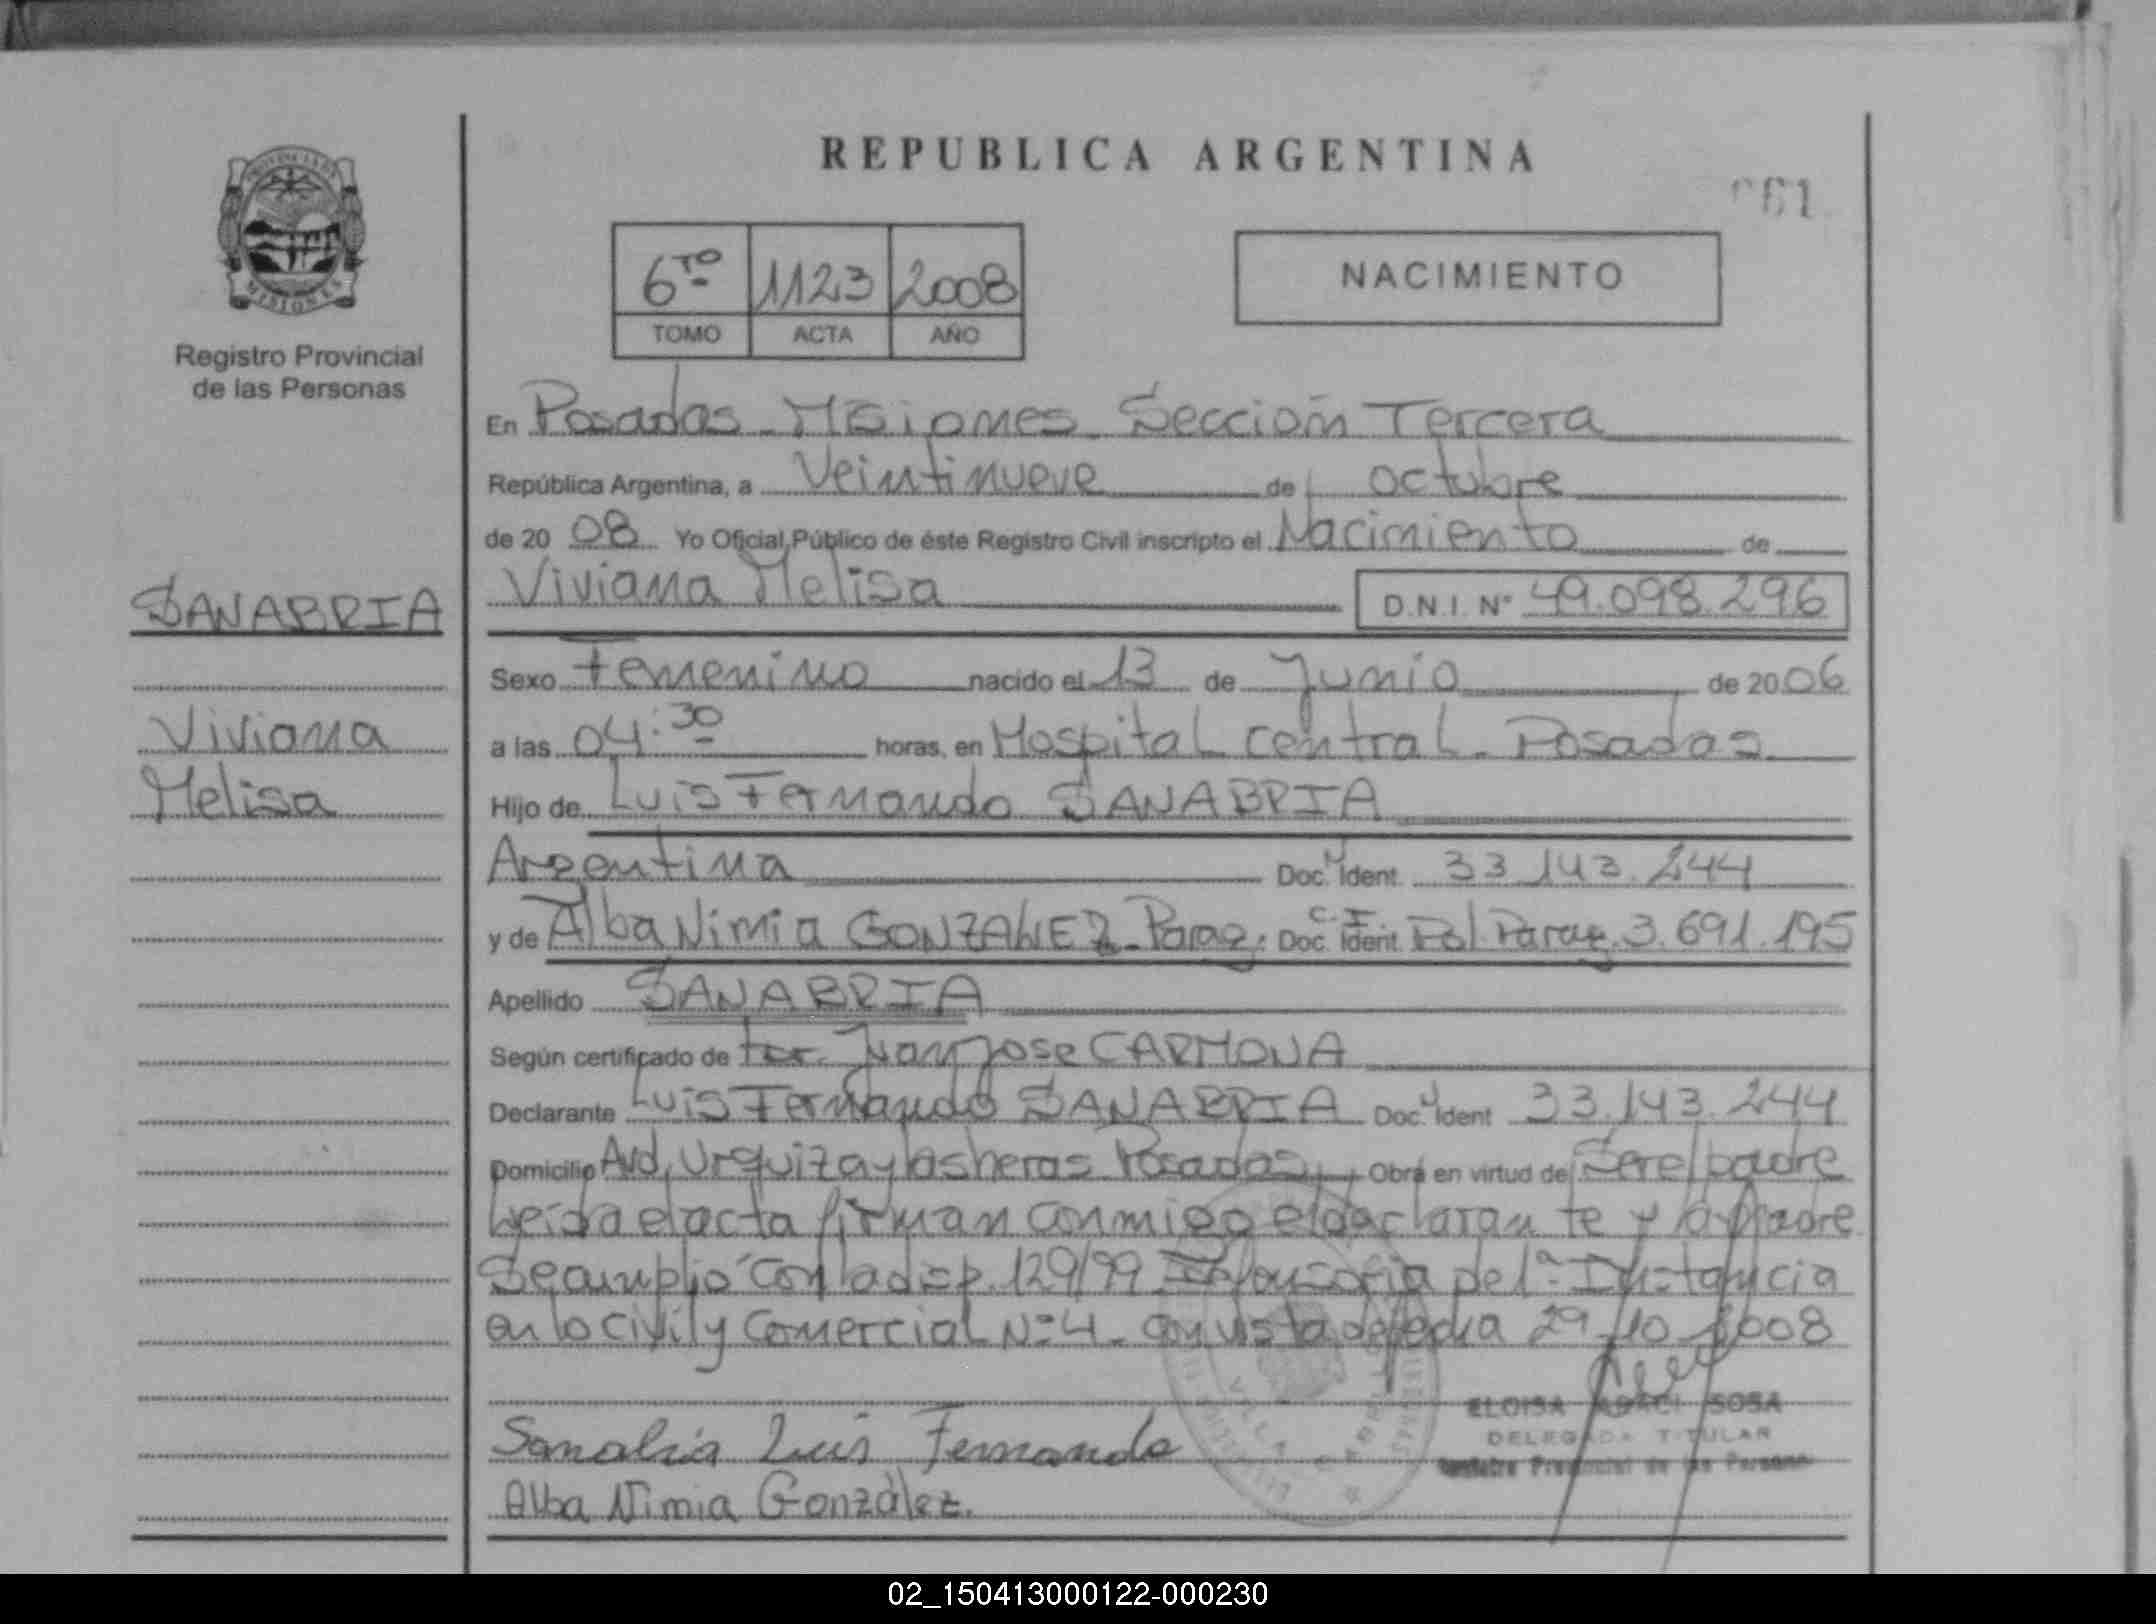 REPUBLICA ARGENTINA
61
PROVINCIA DE
MISIONES
Registro Provincial
de las Personas
6TO 1123 2008
TOMO ACTA AÑO
NACIMIENTO
En Posadas - Misiones - Sección Tercera
República Argentina, a Veintinueve de octubre
de 20 08 Yo Oficial Público de éste Registro Civil inscripto el Nacimiento de
Viviana Melisa D.N.I. Nº 49.098.296
SANABRIA
Viviana
Melisa
Sexo Femenino nacido el 13 de Junio de 20 06
a las 04:30 horas, en Hospital Central - Posadas
Hijo de Luis Fernando SANABRIA
Argentina Doc. Ident. 33.143.244
y de Alba Nimia GONZALEZ - Parag. Doc. Ident. C.I. Pol. Parag. 3.691.195
Apellido SANABRIA
Según certificado de Juan Jose CARMONA
Declarante Luis Fernando SANABRIA Doc. Ident 33.143.244
Domicilio Avd. Urquiza y las heras Posadas Obra en virtud de Ser el padre
Leida el acta firman conmigo el declarante y la madre
Se cumplio con la disp. 129/99 de 1ª Instancia
en lo Civil y Comercial Nº 4 - con vista de fecha 29-10-2008
Sanabria Luis Fernando
Alba Nimia González.
ELOISA SOSA
DELEGADA TITULAR
Registro Provincial de las Personas
02_150413000122-000230